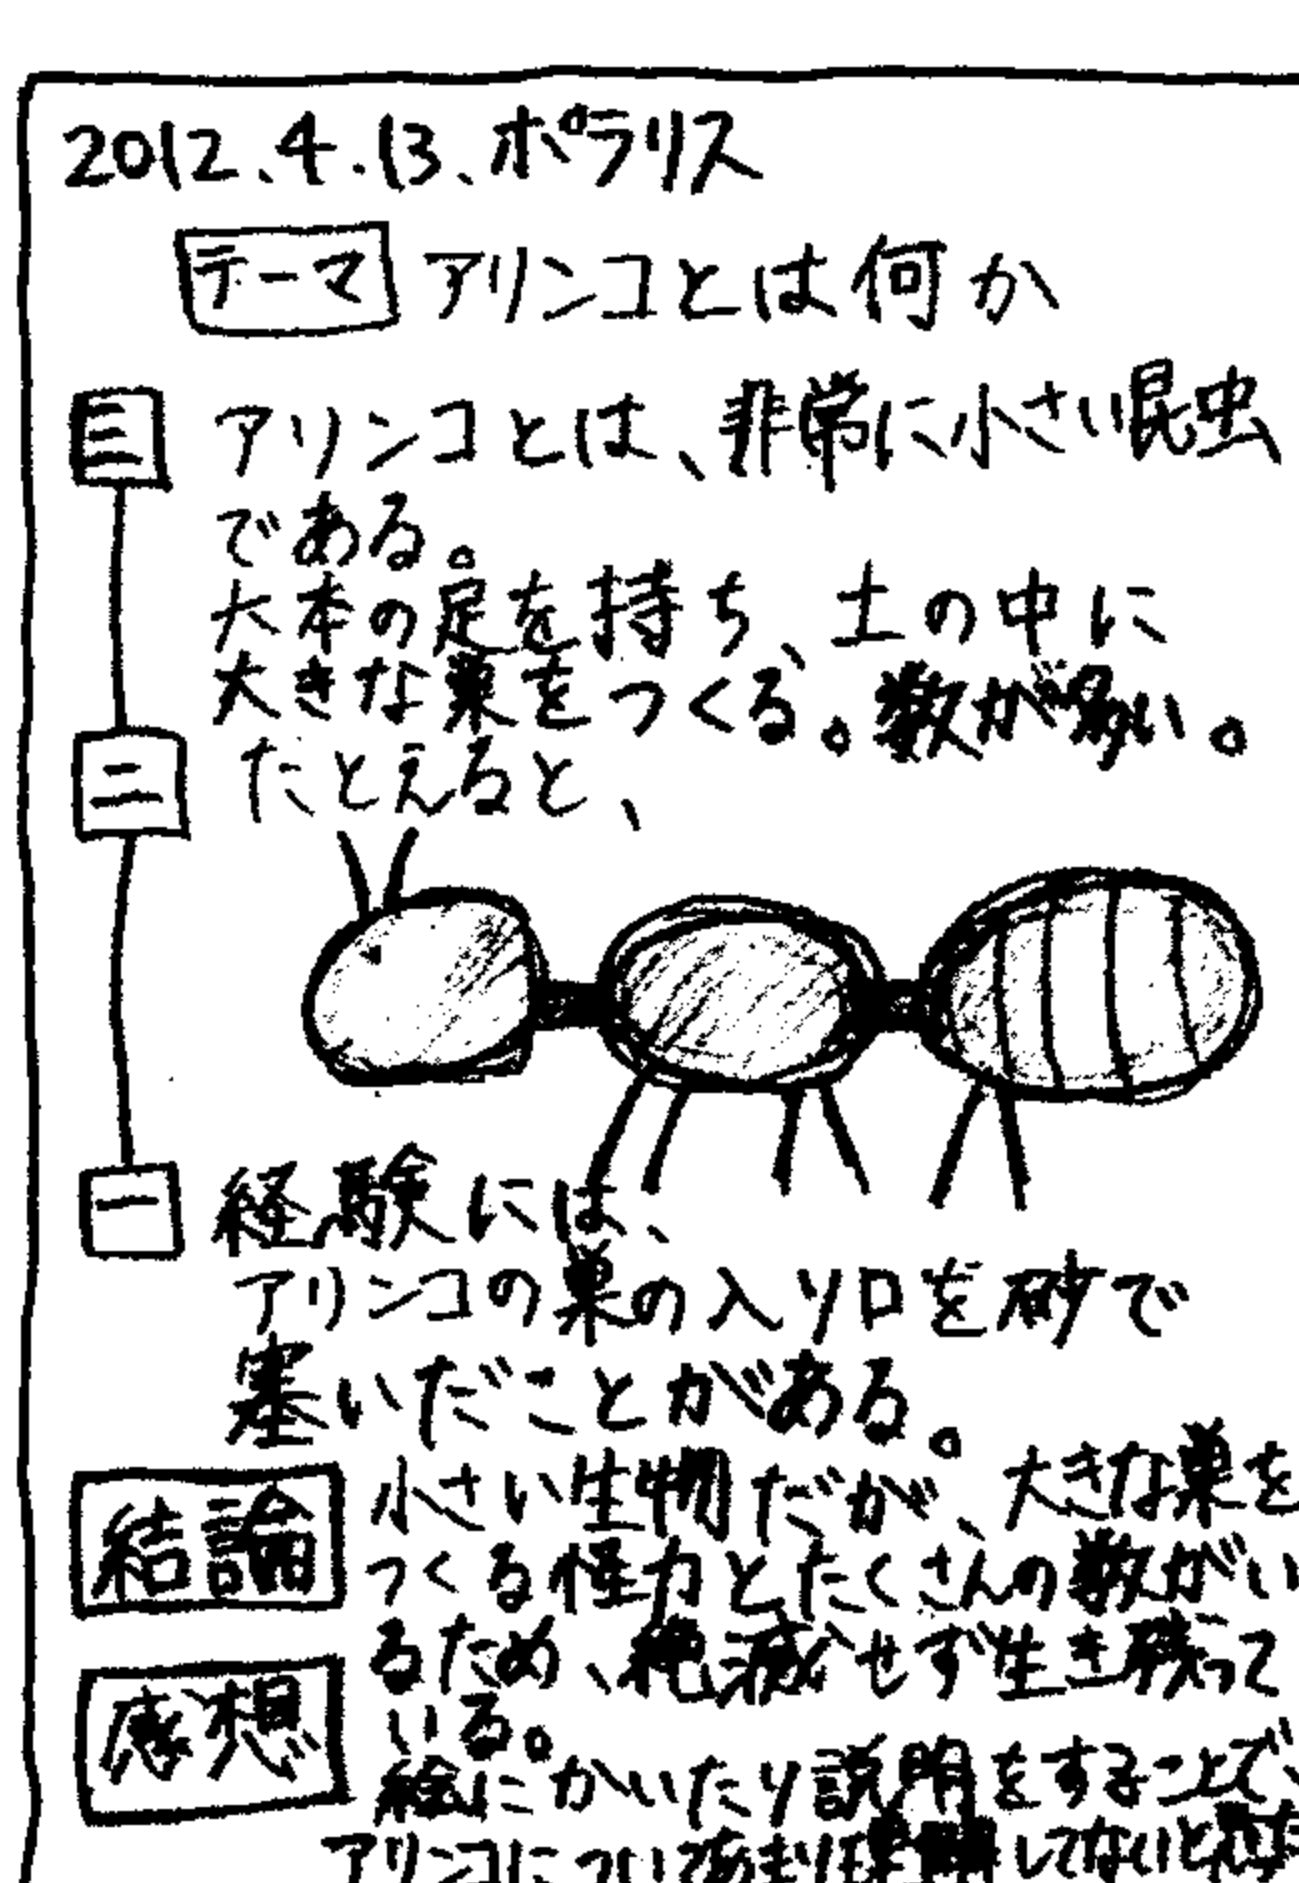 2012.4.13.ポラリス
テーマ アリンコとは何か
三 アリンコとは、非常に小さい昆虫
である。
六本の足を持ち、土の中に
大きな巣をつくる。数が多い。
二 たとえると、
一 経験には、
アリンコの巣の入り口を砂で
塞いだことがある。
結論 小さい生物だが、大きな巣を
つくる怪力とたくさんの数がい
るため、絶滅せず生き残って
いる。
感想 絵にかいたり説明をすることで、
アリンコについてあまり理解してないと